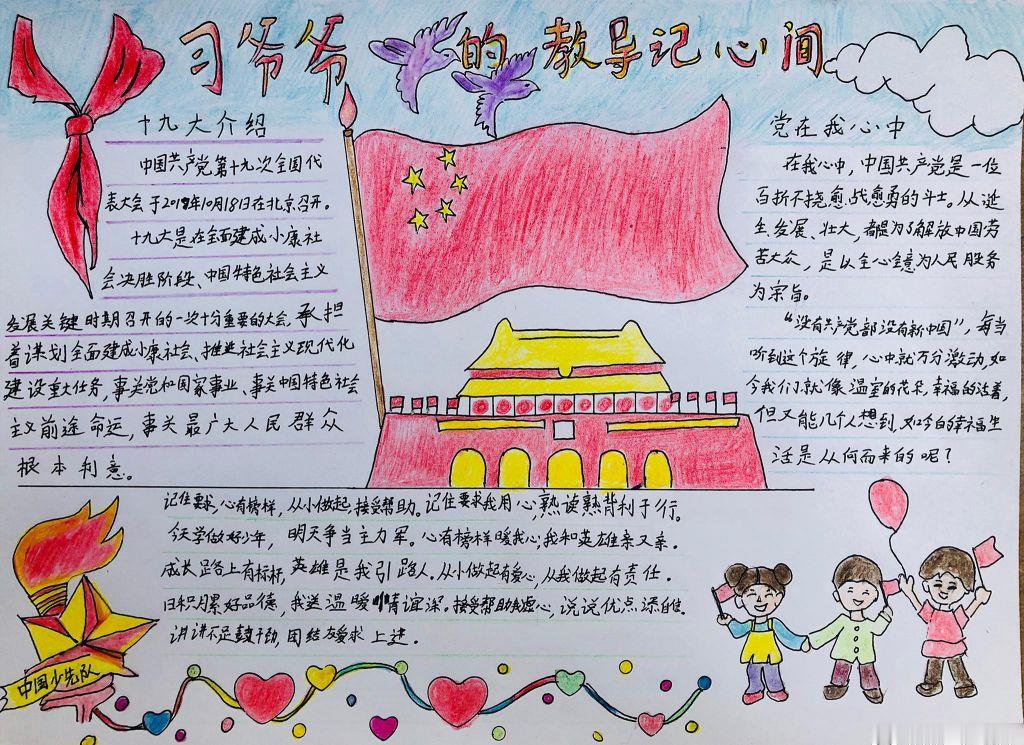 习爷爷的教导记心间
十九大介绍
中国共产党第十九次全国代
表大会于2018年10月18日在北京召开。
十九大是在全面建成小康社
会决胜阶段、中国特色社会主义
发展关键时期召开的一次十分重要的大会，承担
着谋划全面建成小康社会、推进社会主义现代化
建设重大任务，事关党和国家事业、事关中国特色社会
主义前途命运，事关最广大人民群众
根本利意。
党在我心中
在我心中，中国共产党是一位
百折不挠愈战愈勇的斗士。从诞
生、发展、壮大，都是为了解放中国劳
苦大众，是以全心全意为人民服务
为宗旨。
“没有共产党部没有新中国”，每当
听到这个旋律，心中就万分激动，如
今我们就像温室的花朵，幸福的活着，
但又能几个人想到，如今的幸福生
活是从何而来的呢？
记住要求，心有榜样，从小做起，接受帮助。记住要求我用心，熟读熟背利于行。
今天学做好少年，明天争当主力军。心有榜样暖我心，我和英雄亲又亲。
成长路上有标杆，英雄是我引路人。从小做起有爱心，从我做起有责任。
日积月累好品德，我送温暖情谊深。接受帮助我虚心，说说优点添自信。
讲讲不足鼓干劲，团结友爱求上进。
中国少先队